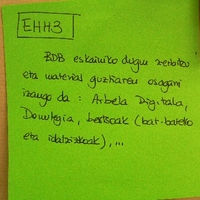 EHH3
BDB eskainiko dugun zerbitzu
eta material guztiaren osagarri
izango da: Arbela Digitala,
Doinutegia, bertsoak (bat-bateko
eta idatzizkoak),...